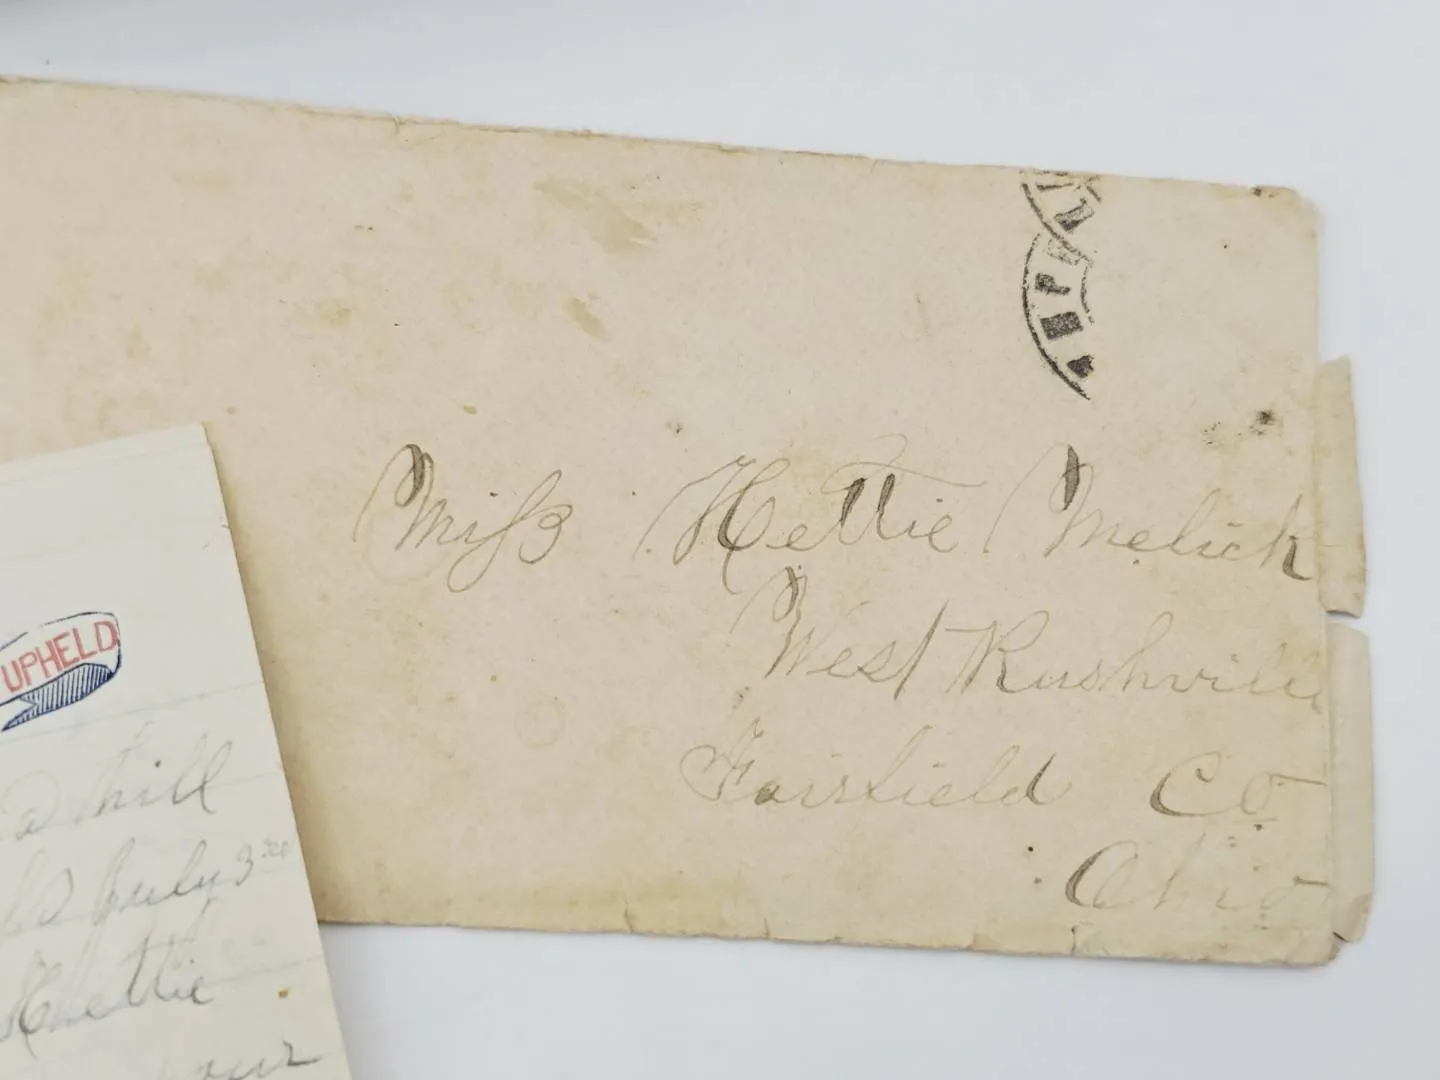 Miss Hettie Melick
West Rushville
Fairfield Co
Ohio
UPHELD
hill
July 3rd
Hettie